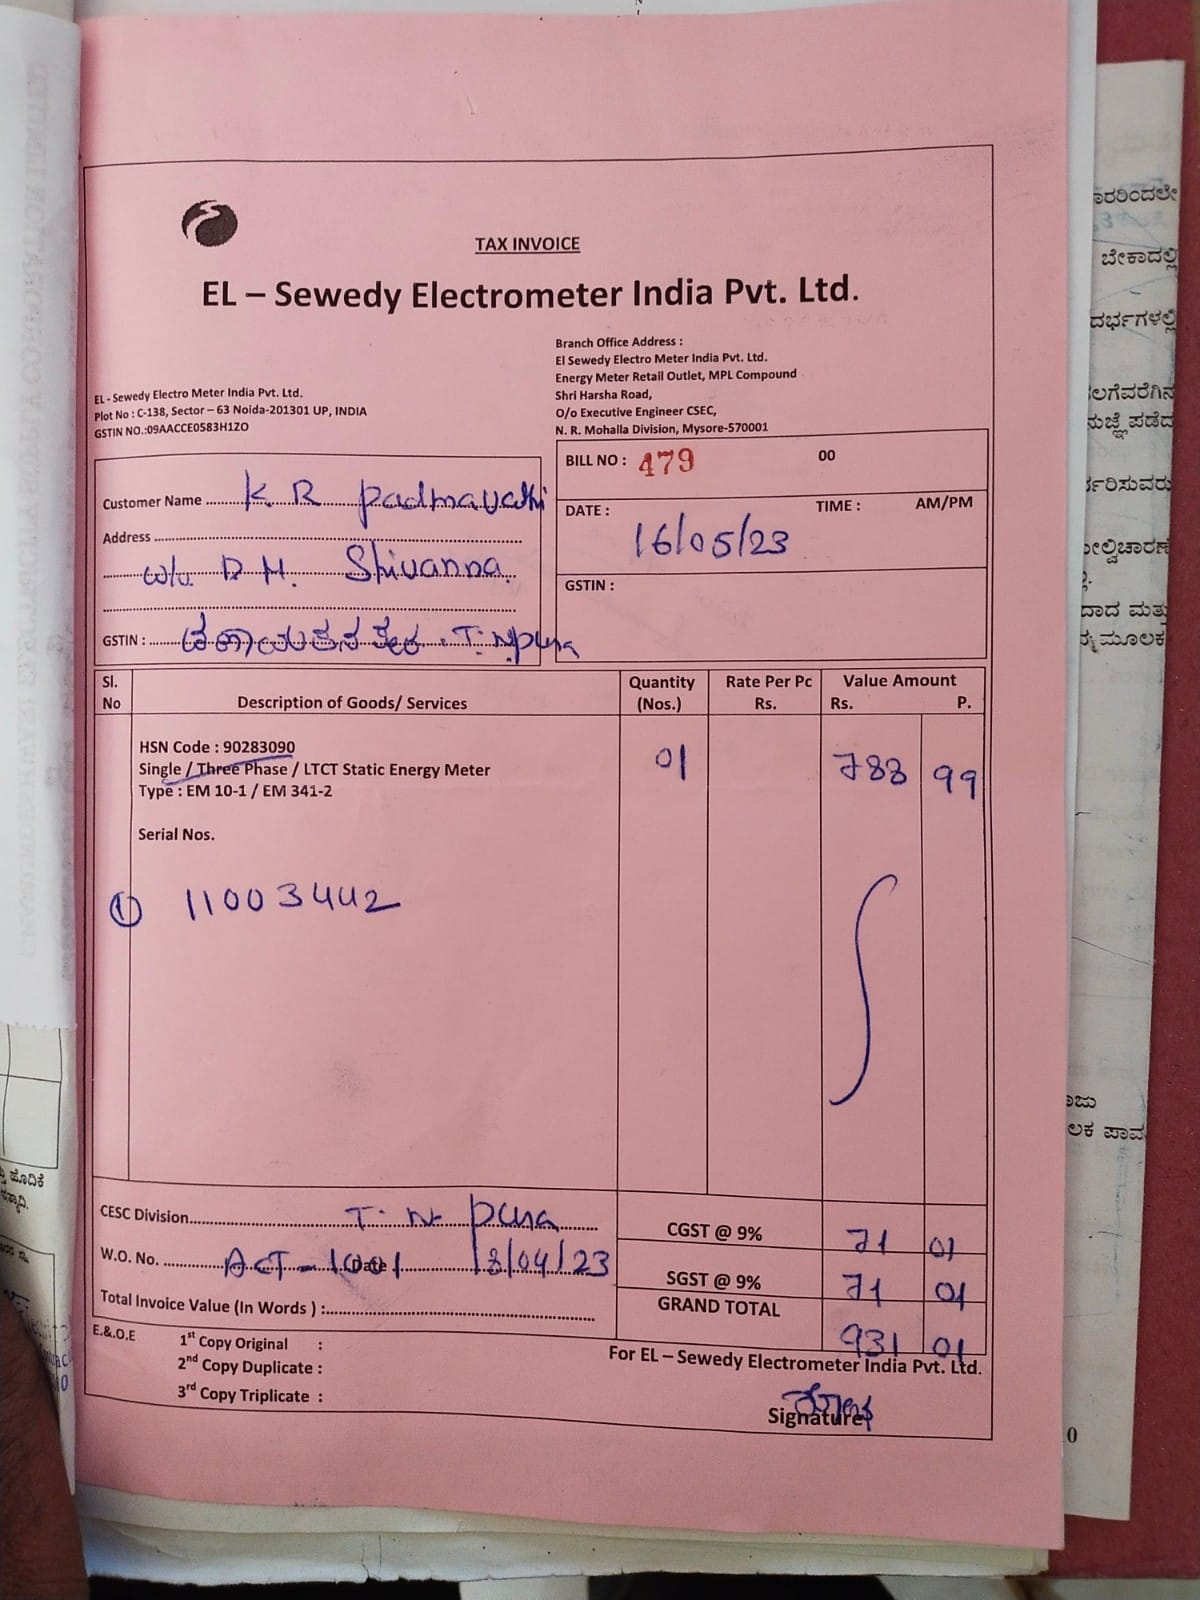 TAX INVOICE
EL – Sewedy Electrometer India Pvt. Ltd.
EL - Sewedy Electro Meter India Pvt. Ltd.
Plot No : C-138, Sector – 63 Noida-201301 UP, INDIA
GSTIN NO.:09AACCE0583H1ZO
Branch Office Address :
El Sewedy Electro Meter India Pvt. Ltd.
Energy Meter Retail Outlet, MPL Compound
Shri Harsha Road,
O/o Executive Engineer CSEC,
N. R. Mohalla Division, Mysore-570001
Customer Name K R Padmavathi
Address
w/o D M. Shivanna.
GSTIN : T. N pura
BILL NO : 479 00
DATE : TIME : AM/PM
16/05/23
GSTIN :
Sl. No Description of Goods/ Services Quantity (Nos.) Rate Per Pc Rs. Value Amount Rs. P.
HSN Code : 90283090 01 788 99
Single / Three Phase / LTCT Static Energy Meter
Type : EM 10-1 / EM 341-2
Serial Nos.
① 11003442
CESC Division T. N pura
CGST @ 9% 71 01
W.O. No. ACT - 1001 Date 18/04/23
SGST @ 9% 71 01
Total Invoice Value (In Words ) :
GRAND TOTAL 931 01
E.&.O.E 1st Copy Original :
2nd Copy Duplicate :
3rd Copy Triplicate :
For EL – Sewedy Electrometer India Pvt. Ltd.
Signature
ಬೇಕಾದಲ್ಲಿ
ಮೂಲಕ
ಹೊದಿಕೆ